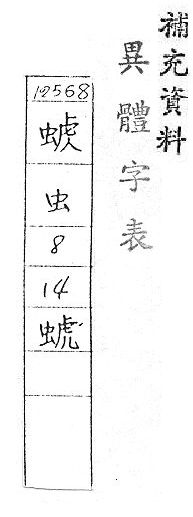 補充資料
異體字表
12568
虫
8
14